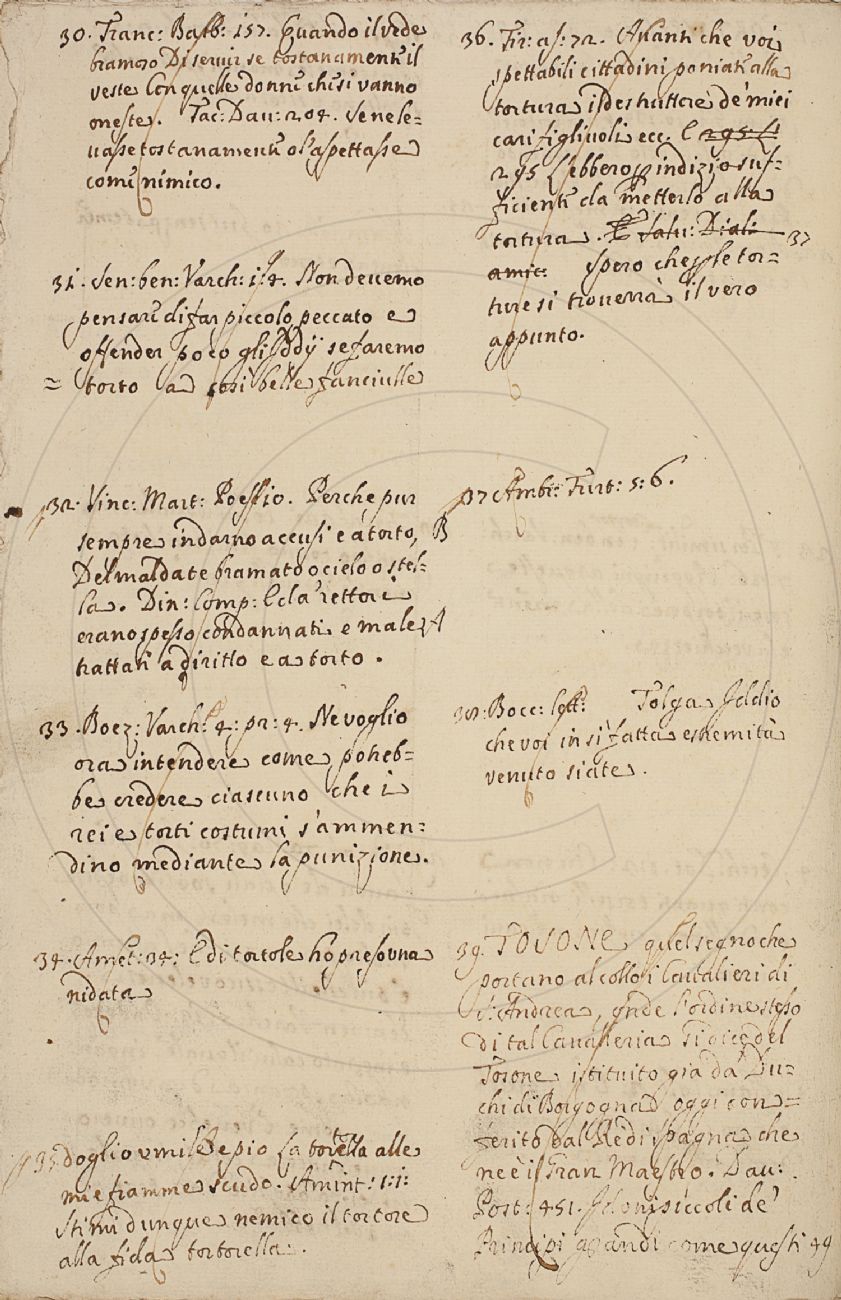 30. Franc: Barb: 157. Quando il vede
bramoso Di servir se tostanamente il
veste Con quelle donne chesi vanno
oneste. Tac: Dav: 204. Senele=
vasse tostanamente o l'aspettasse
come nimico.
31. Sen: ben: Varch: 1.4. Non devemo
pensare di far piccolo peccato e
offender poco gli Iddij se faremo
= torto a così belle fanciulle
32. Vinc: Mart: Perche pur
sempre indarno accusi e a torto,
Del mal date bramato o cielo o stel=
la. Din: Comp: E cla rettori
erano spesso condannati e male
trattati a diritto e a torto.
33. Boez: Varch: 4: pr: 4. Ne voglio
ora intendere come potreb=
be credere ciascuno che i
rei e torti costumi s'ammen=
dino mediante la punizione.
34. Amet: 34: E di tortole ho preso una
nidata
35. doglio umile e pio La tortella alle
mie fiamme scudo. Amint: 1: 1:
Stimi dunque nemico il tortore
alla fida tortorella.
36. Fir: as: 72. Avanti che voi
spettabili cittadini poniate alla
tortura il destruttore de' miei
cari figliuoli ecc. E 295. E
295 Ebbero indizio suf=
ficiente da metterlo alla
tortura. E Salv: Dial: 37
amic: spero che le tor=
ture si troverrà il vero
appunto.
37 Ambr: Furt: 5: 6.
B
A
38: Bocc: lett: Tolga Iddio
che voi in sì fatta estremità
venuto siate.
39. TOSONE quel segno che
portano al collo i Cavalieri di
S: Andrea, onde l'ordine stesso
di tal Cavalleria si dice del
Tosone istituito già da' Du=
chi di Borgogna oggi con=
ferito dal Re di Spagna che
ne è il Gran Maestro. Dav:
Post: 451. I doni piccoli de'
Principi grandi come questi 49